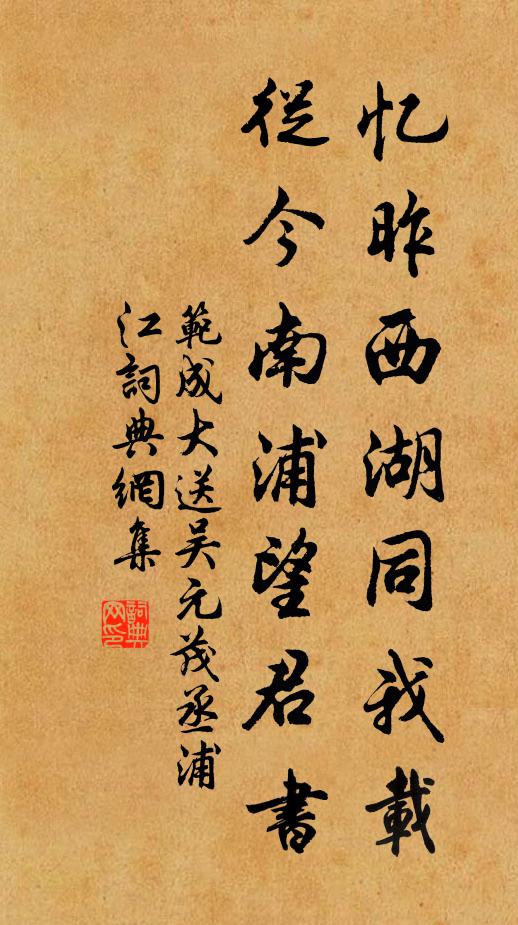 忆昨西湖同我載
從今南浦望君書
範成大送吴元茂丞浦
江詞典網集
詞典网印